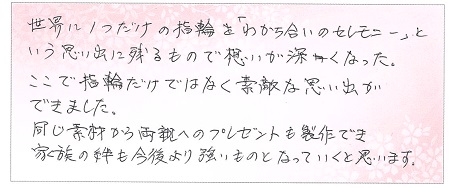 世界に1つだけの指輪を「わかち合いのセレモニー」と
いう思い出に残るもので想いが深くなった。
ここで指輪だけではなく素敵な思い出が
できました。
同じ素材から両親へのプレゼントも製作でき
家族の絆も今後より強いものとなっていくと思います。